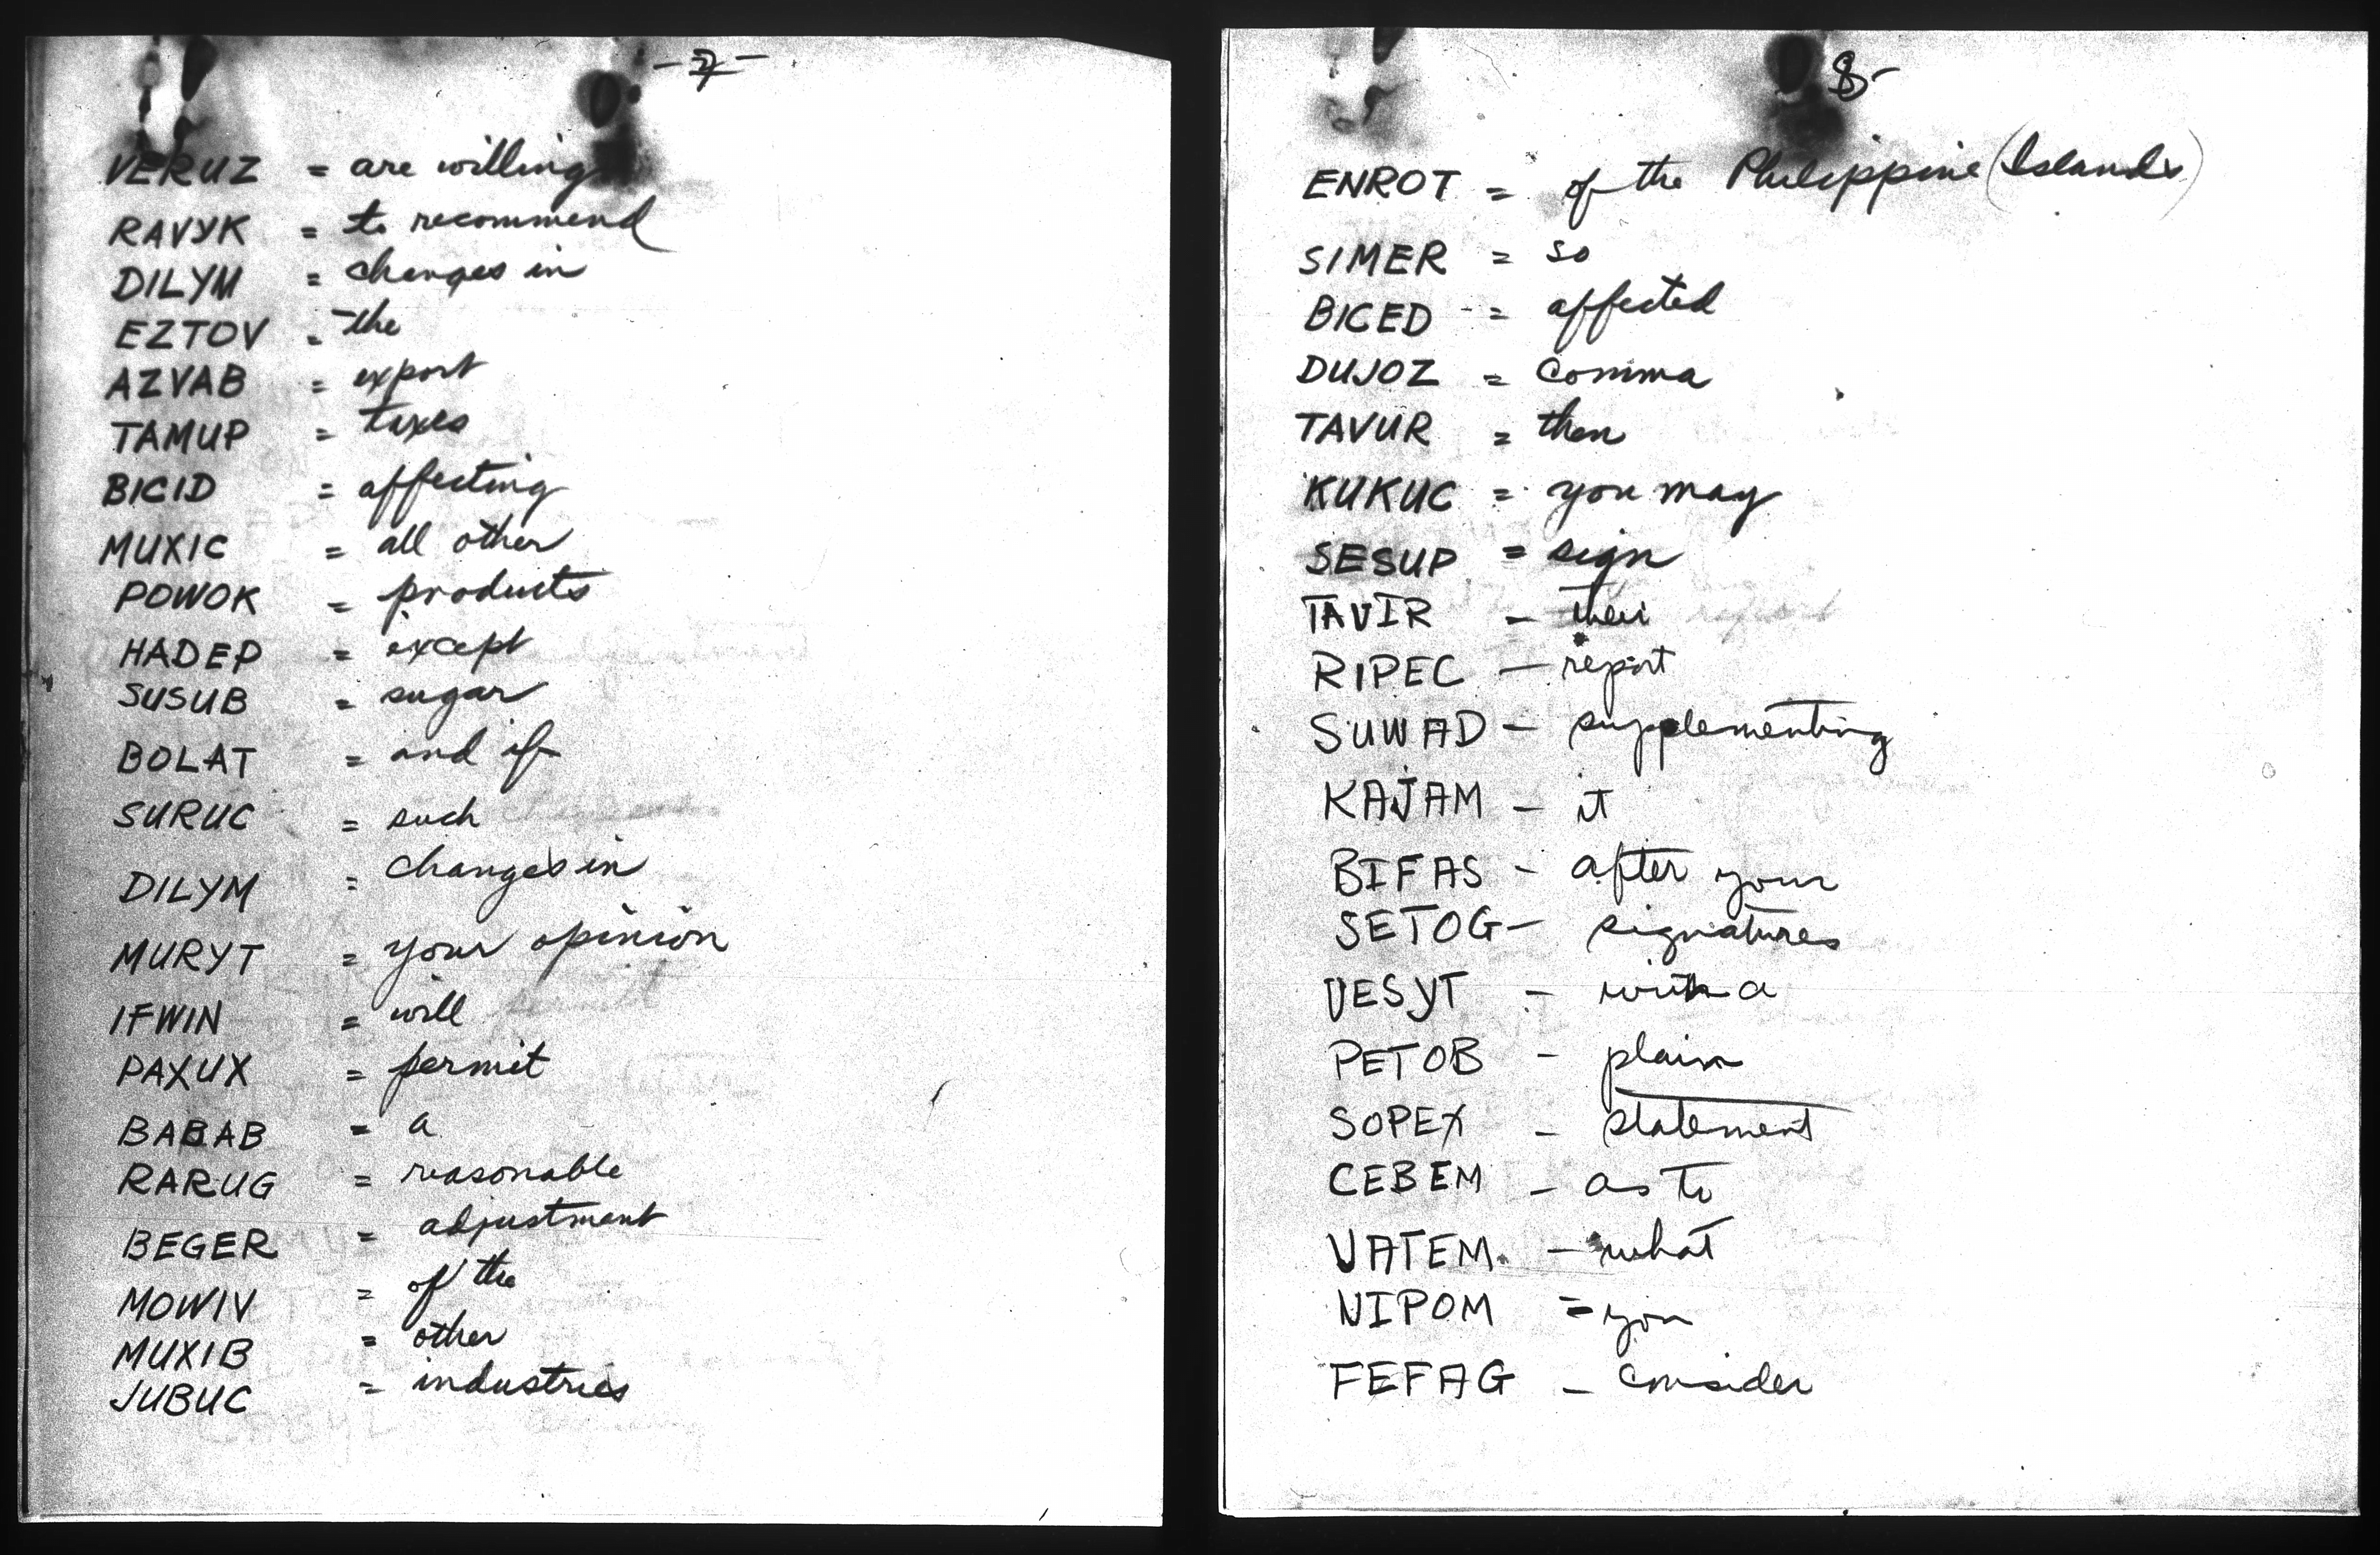 -7-
VERUZ = are willing
RAVYK = to recommend
DILYM = changes in
EZTOV = the
AZVAB = export
TAMUP = taxes
BICID = affecting
MUXIC = all other
POWOK = products
HADEP = except
SUSUB = sugar
BOLAT = and if
SURUC = such
DILYM = changes in
MURYT = your opinion
IFWIN = will
PAXUX = permit
BABAB = a
RARUG = reasonable
BEGER = adjustment
MOWIV = of the
MUXIB = other
JUBUC = industries
8-
ENROT = of the Philippine (Islands)
SIMER = so
BICED = affected
DUJOZ = Comma
TAVUR = then
KUKUC = you may
SESUP = sign
TAVIR - their
RIPEC - report
SUWAD - supplementing
KAJAM - it
BIFAS - after your
SETOG - signatures
VESYT - with a
PETOB - plain
SOPEX - statement
CEBEM - as to
VATEM - what
NIPOM = you
FEFAG - consider